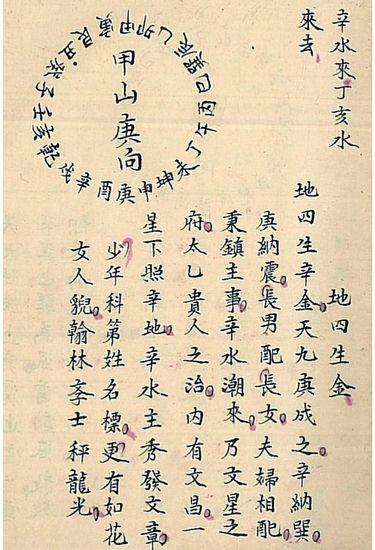 辛水來丁亥水
來去
甲山庚向
壬子癸丑艮寅甲卯乙辰巽巳丙午丁未坤申庚酉辛戌乾亥
地四生金
地四生辛金。天九庚成之。辛納巽。
庚納震。長男配長女。夫婦相配。
秉鎮主事。辛水潮來。乃文星之
府。太乙貴人之治。內有文昌一
星下照辛地。辛水主秀發文章。
少年科第姓名標。更有如花
女人貌。翰林斈士秤龍光。